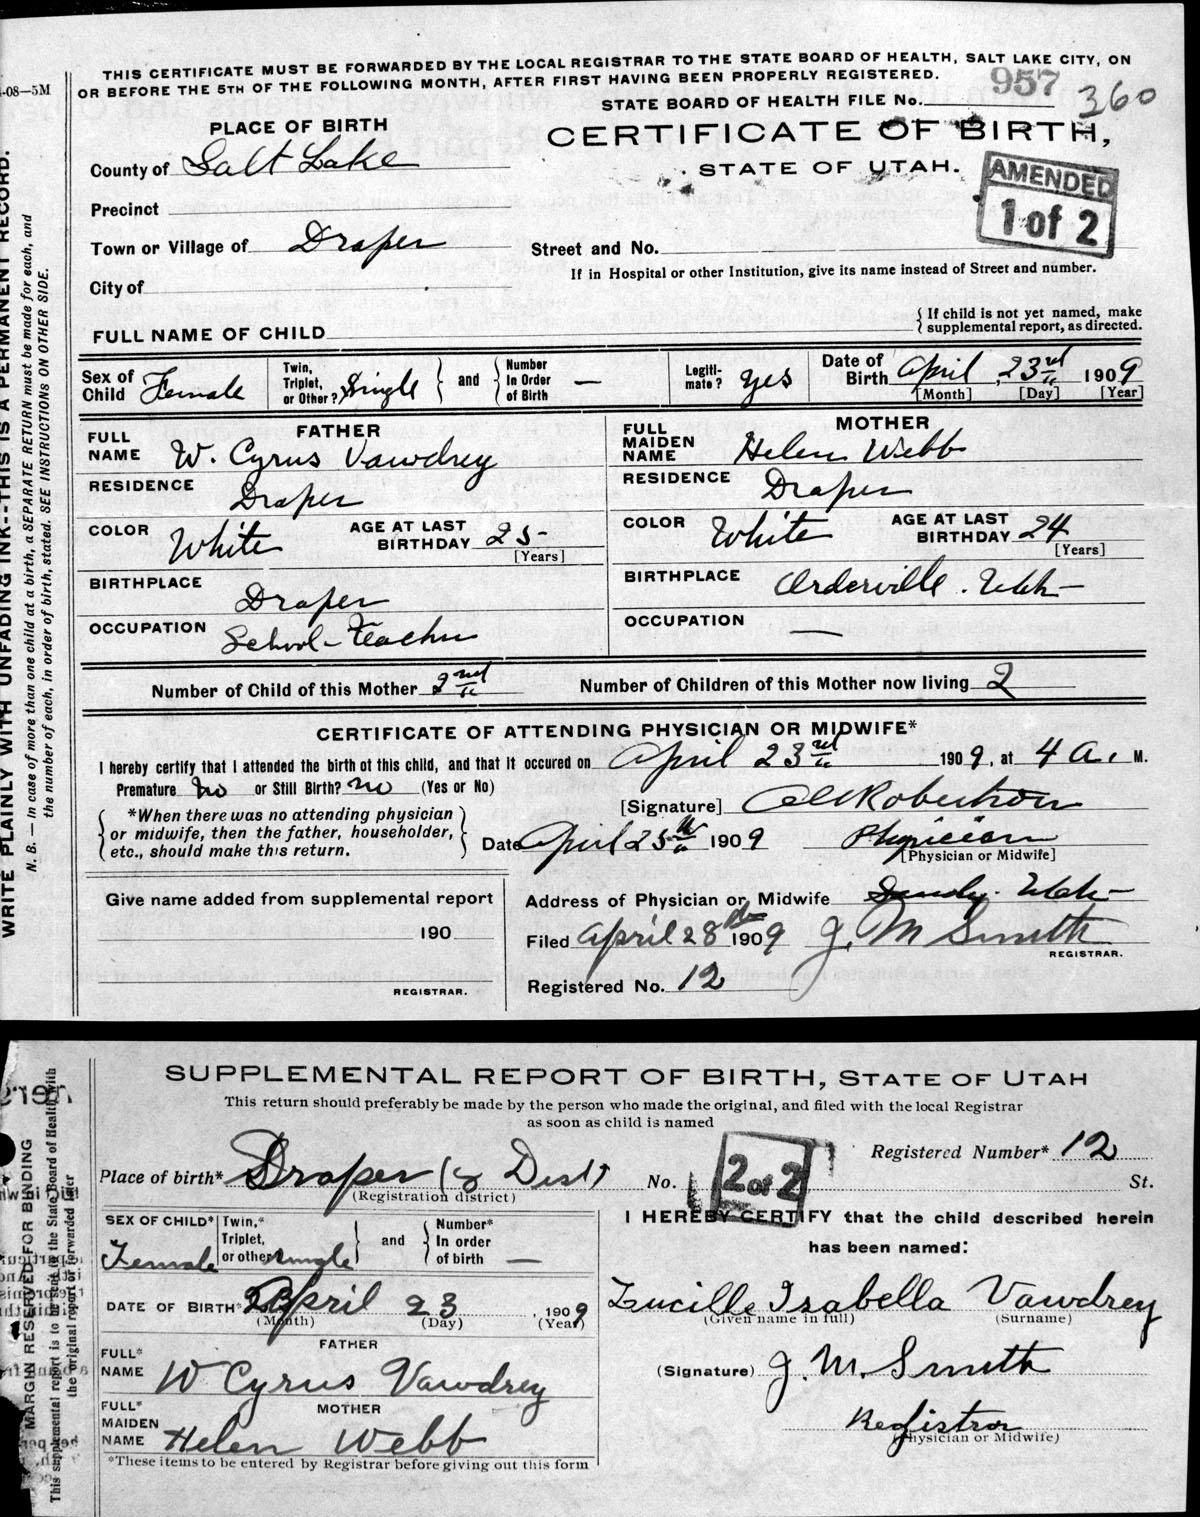 THIS CERTIFICATE MUST BE FORWARDED BY THE LOCAL REGISTRAR TO THE STATE BOARD OF HEALTH, SALT LAKE CITY, ON
OR BEFORE THE 5TH OF THE FOLLOWING MONTH, AFTER FIRST HAVING BEEN PROPERLY REGISTERED.
-08—5M
STATE BOARD OF HEALTH FILE No. 957 360
PLACE OF BIRTH
CERTIFICATE OF BIRTH,
County of Salt Lake
STATE OF UTAH.
AMENDED
1 of 2
Precinct
Town or Village of Draper
Street and No.
If in Hospital or other Institution, give its name instead of Street and number.
City of
FULL NAME OF CHILD
{ If child is not yet named, make
supplemental report, as directed.
Sex of Child Female
Twin, Triplet, or Other? Single } and { Number In Order of Birth —
Legitimate? yes
Date of Birth April 23rd 1909
[Month] [Day] [Year]
FATHER
FULL NAME W. Cyrus Vawdrey
RESIDENCE Draper
COLOR White AGE AT LAST BIRTHDAY 25
[Years]
BIRTHPLACE Draper
OCCUPATION School-Teacher
MOTHER
FULL MAIDEN NAME Helen Webb
RESIDENCE Draper
COLOR White AGE AT LAST BIRTHDAY 24
[Years]
BIRTHPLACE Orderville. Utah
OCCUPATION —
Number of Child of this Mother 2nd Number of Children of this Mother now living 2
CERTIFICATE OF ATTENDING PHYSICIAN OR MIDWIFE*
I hereby certify that I attended the birth of this child, and that it occured on April 23rd 1909, at 4 a. M.
Premature no or Still Birth? no (Yes or No)
[Signature] Robertson
{ *When there was no attending physician
or midwife, then the father, householder,
etc., should make this return. }
Date April 25th 1909 Physician
[Physician or Midwife]
Give name added from supplemental report
190
REGISTRAR.
Address of Physician or Midwife Sandy. Utah
Filed April 28th 1909 J. M Smith
REGISTRAR.
Registered No. 12
WRITE PLAINLY WITH UNFADING INK--THIS IS A PERMANENT RECORD.
N. B.—In case of more than one child at a birth, a SEPARATE RETURN must be made for each, and
the number of each, in order of birth, stated. SEE INSTRUCTIONS ON OTHER SIDE.
SUPPLEMENTAL REPORT OF BIRTH, STATE OF UTAH
This return should preferably be made by the person who made the original, and filed with the local Registrar
as soon as child is named
Registered Number* 12
Place of birth* Draper Dist
(Registration district)
No. St.
2 of 2
SEX OF CHILD* Female
Twin,* Triplet, or other single } and { Number* In order of birth —
DATE OF BIRTH* April 23, 1909
(Month) (Day) (Year)
FATHER
FULL* NAME W Cyrus Vawdrey
MOTHER
FULL* MAIDEN NAME Helen Webb
*These items to be entered by Registrar before giving out this form
I HEREBY CERTIFY that the child described herein
has been named:
Lucille Isabella Vawdrey
(Given name in full) (Surname)
(Signature) J. M. Smith
Registrar
(Physician or Midwife)
MARGIN RESERVED FOR BINDING
This supplemental report is to be sent to the State Board of Health with
the original report if forwarded later